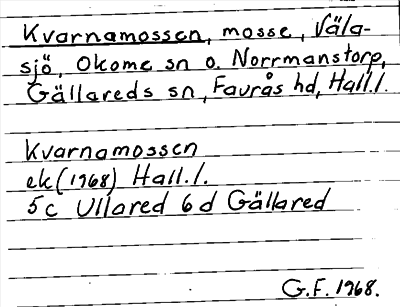 Kvarnamossen, mosse, Väla-
sjö, Okome sn o. Norrmanstorp,
Gällareds sn, Faurås hd, Hall.l.
Kvarnamossen
ek (1968) Hall.l.
5c Ullared 6d Gällared
G.F. 1968.